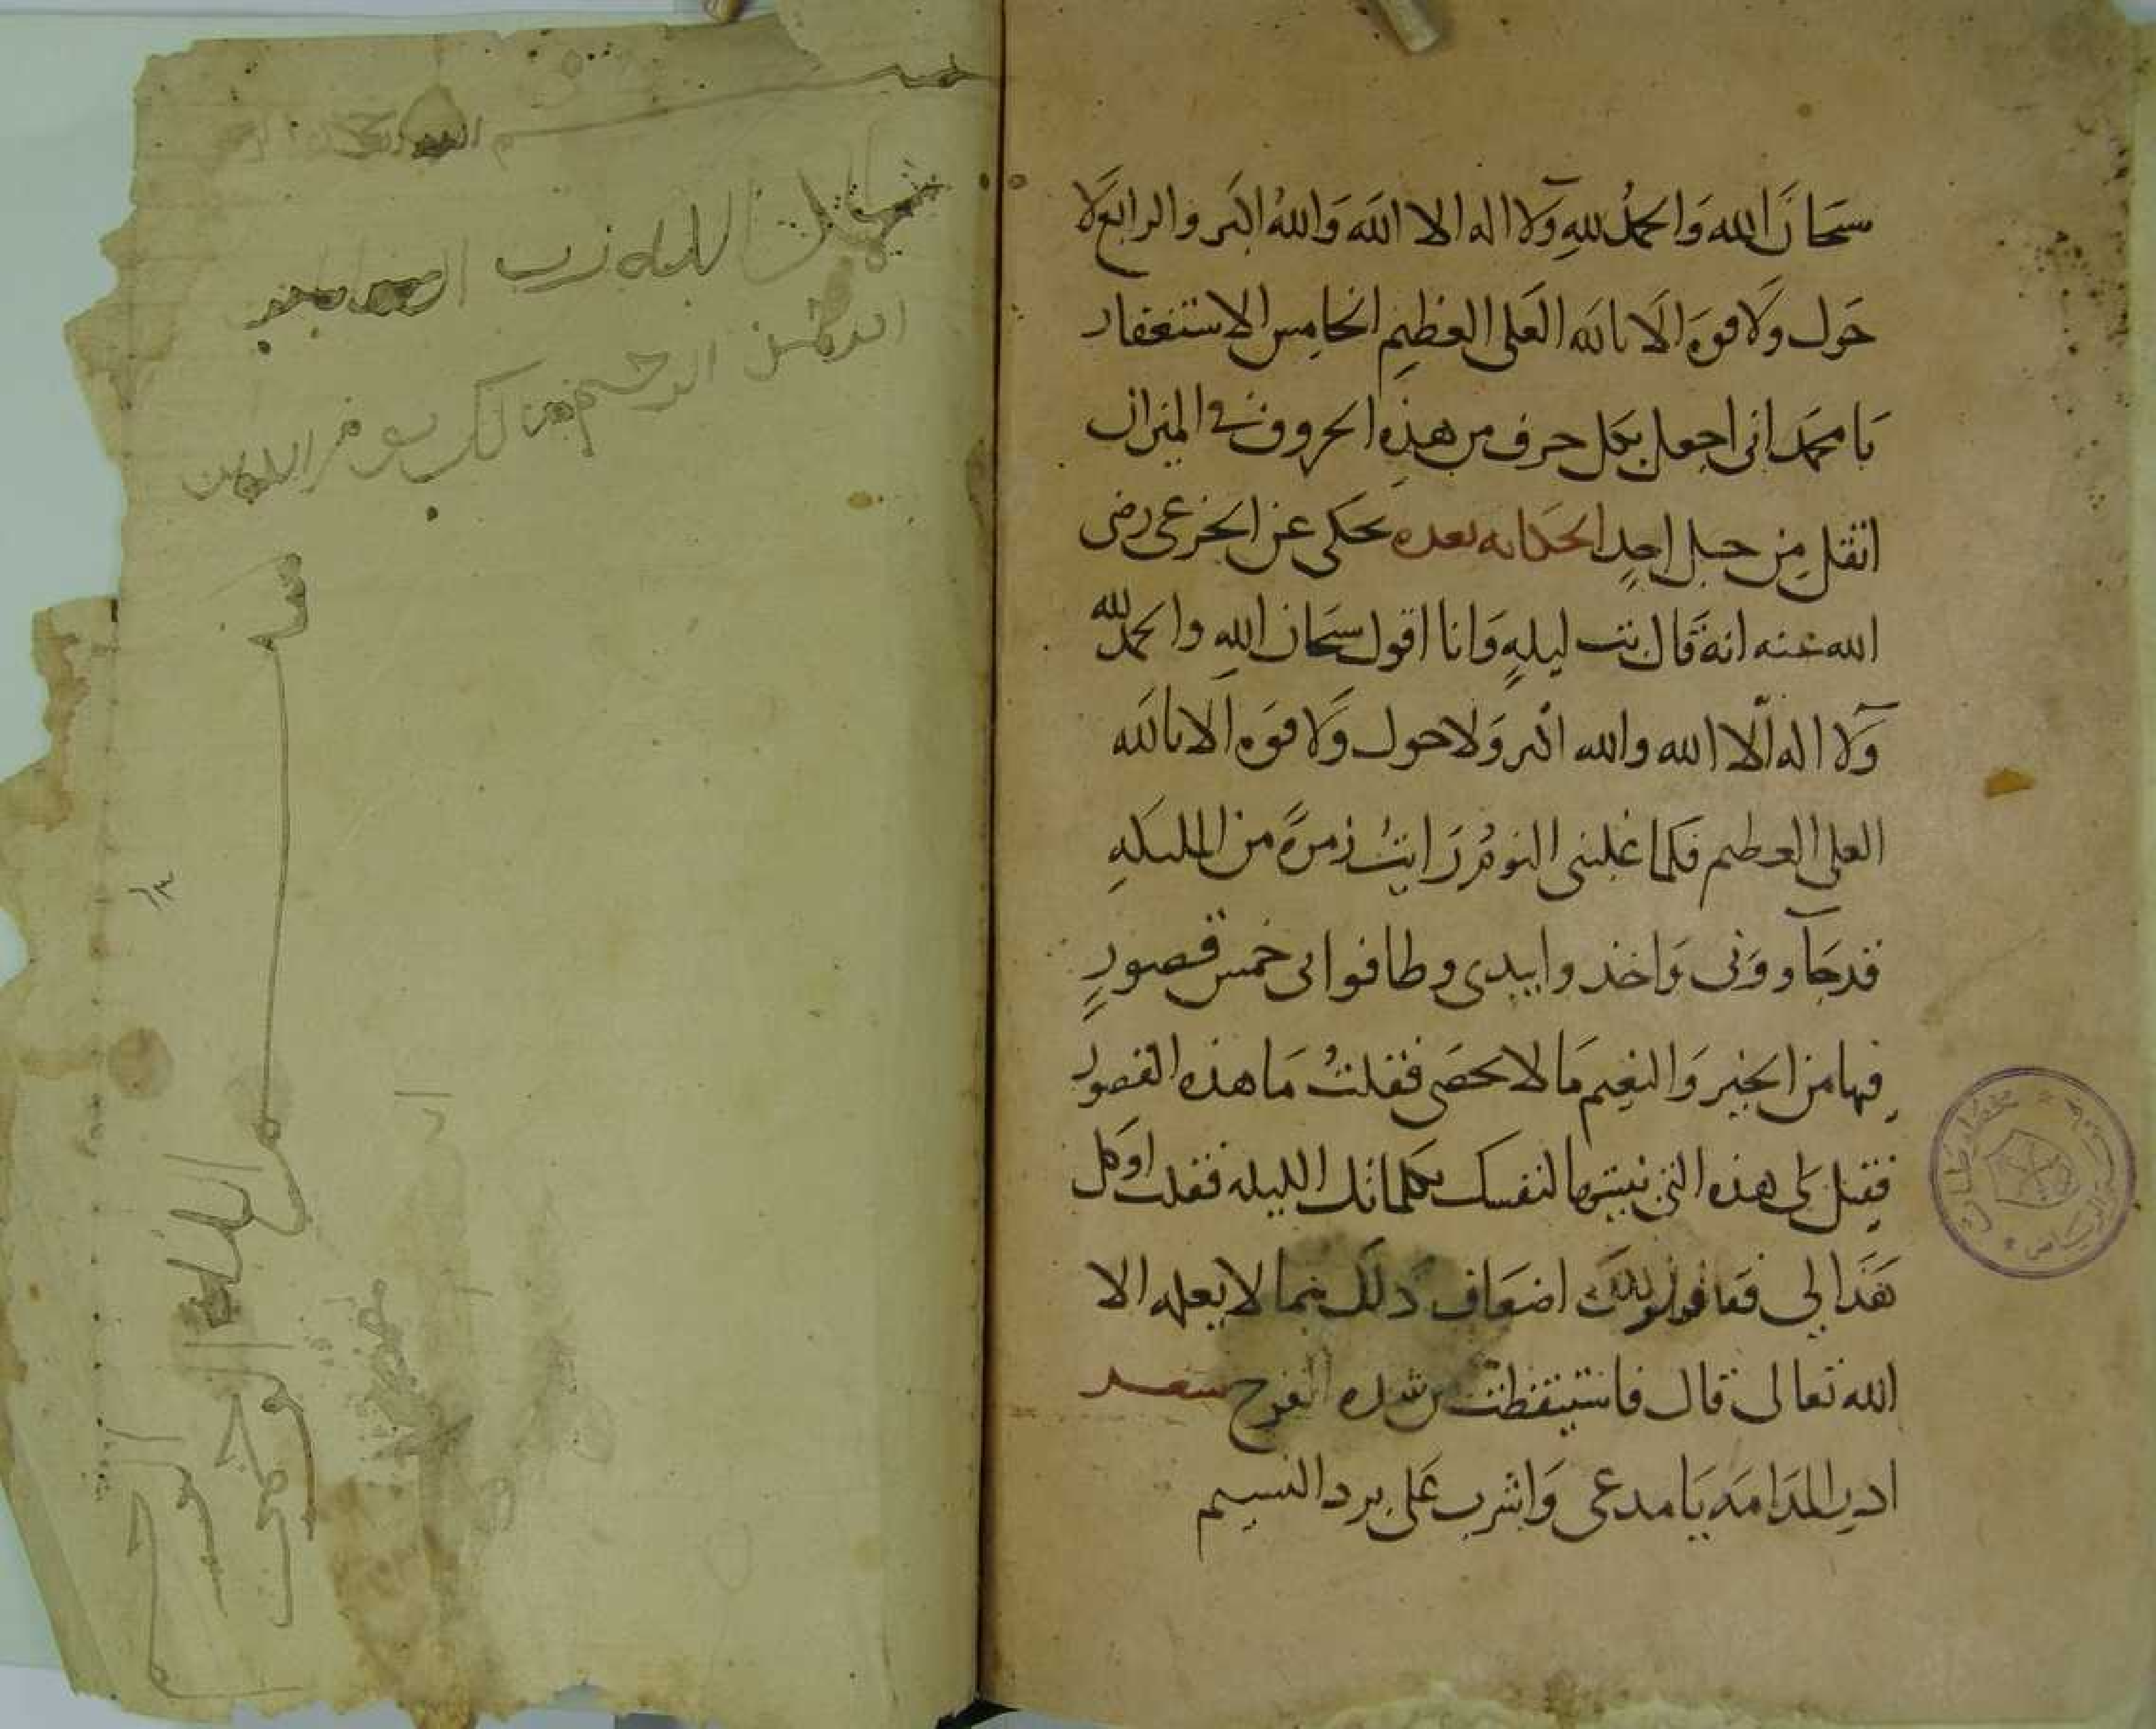 سبحان الله والحمد لله ولا اله الا الله والله اكبر والرابع لا
حول ولا قوة الا بالله العلى العظيم الخامس الاستغفار
يا محمد انى اجعل بكل حرف من هذه الحروف فى الميزان
اثقل من جبل احد الحكايه بعده يحكى عن الخزعى رضى
الله عنه انه قال بت ليلة وانا اقول سبحان الله والحمد لله
ولا اله الا الله والله اكبر ولا حول ولا قوة الا بالله
العلى العظيم فكما غلبنى النوم رايت زمرة من المليكة
قد جآوونى واخذوا بيدى وطافوا بى خمس قصور
فيها من الخير والنعيم ما لا يحصى فقلت ما هذه القصور
فقيل لى هذه التى بنيتها لنفسك بكلماتك الليله فقلت اوكل
هذا لى فقالوا ولك اضعاف ذلك بما لا يعلمه الا
الله تعالى قال فاستيقظت من شدة الفرح شعر
ادر المدامه يا مدعى واشرب على برد النسيم
لله رب
الرحيم مالك يوم الدين
٦٣